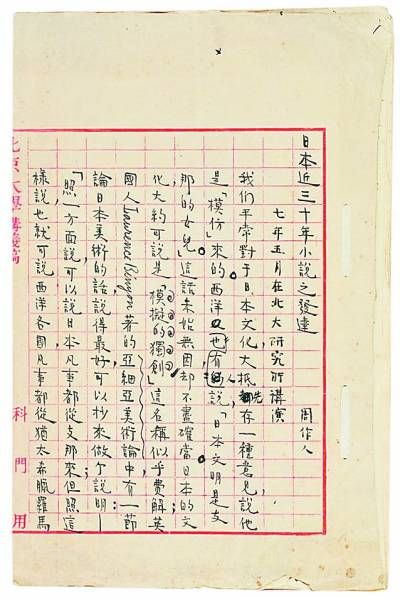 日本近三十年小說之發達
七年五月在北大研究所講演 周作人
我们平常對于日本文化大抵先存一種意見說他
是「模仿」來的西洋也有人說「日本文明是支
那的女兒」這話未始無因却不盡確當日本的文
化大約可說是「模擬的獨創」這名稱似乎費解英
國人Laurence Binyon著的亞細亞美術論中有一節
論日本美術的話說得最好可以抄來做个說明—
「照一方面說可以說日本凡事都從支那來但照這
樣說也就可說西洋各國凡事都從猶太希臘羅馬
北京大學講義稿
科 門 用